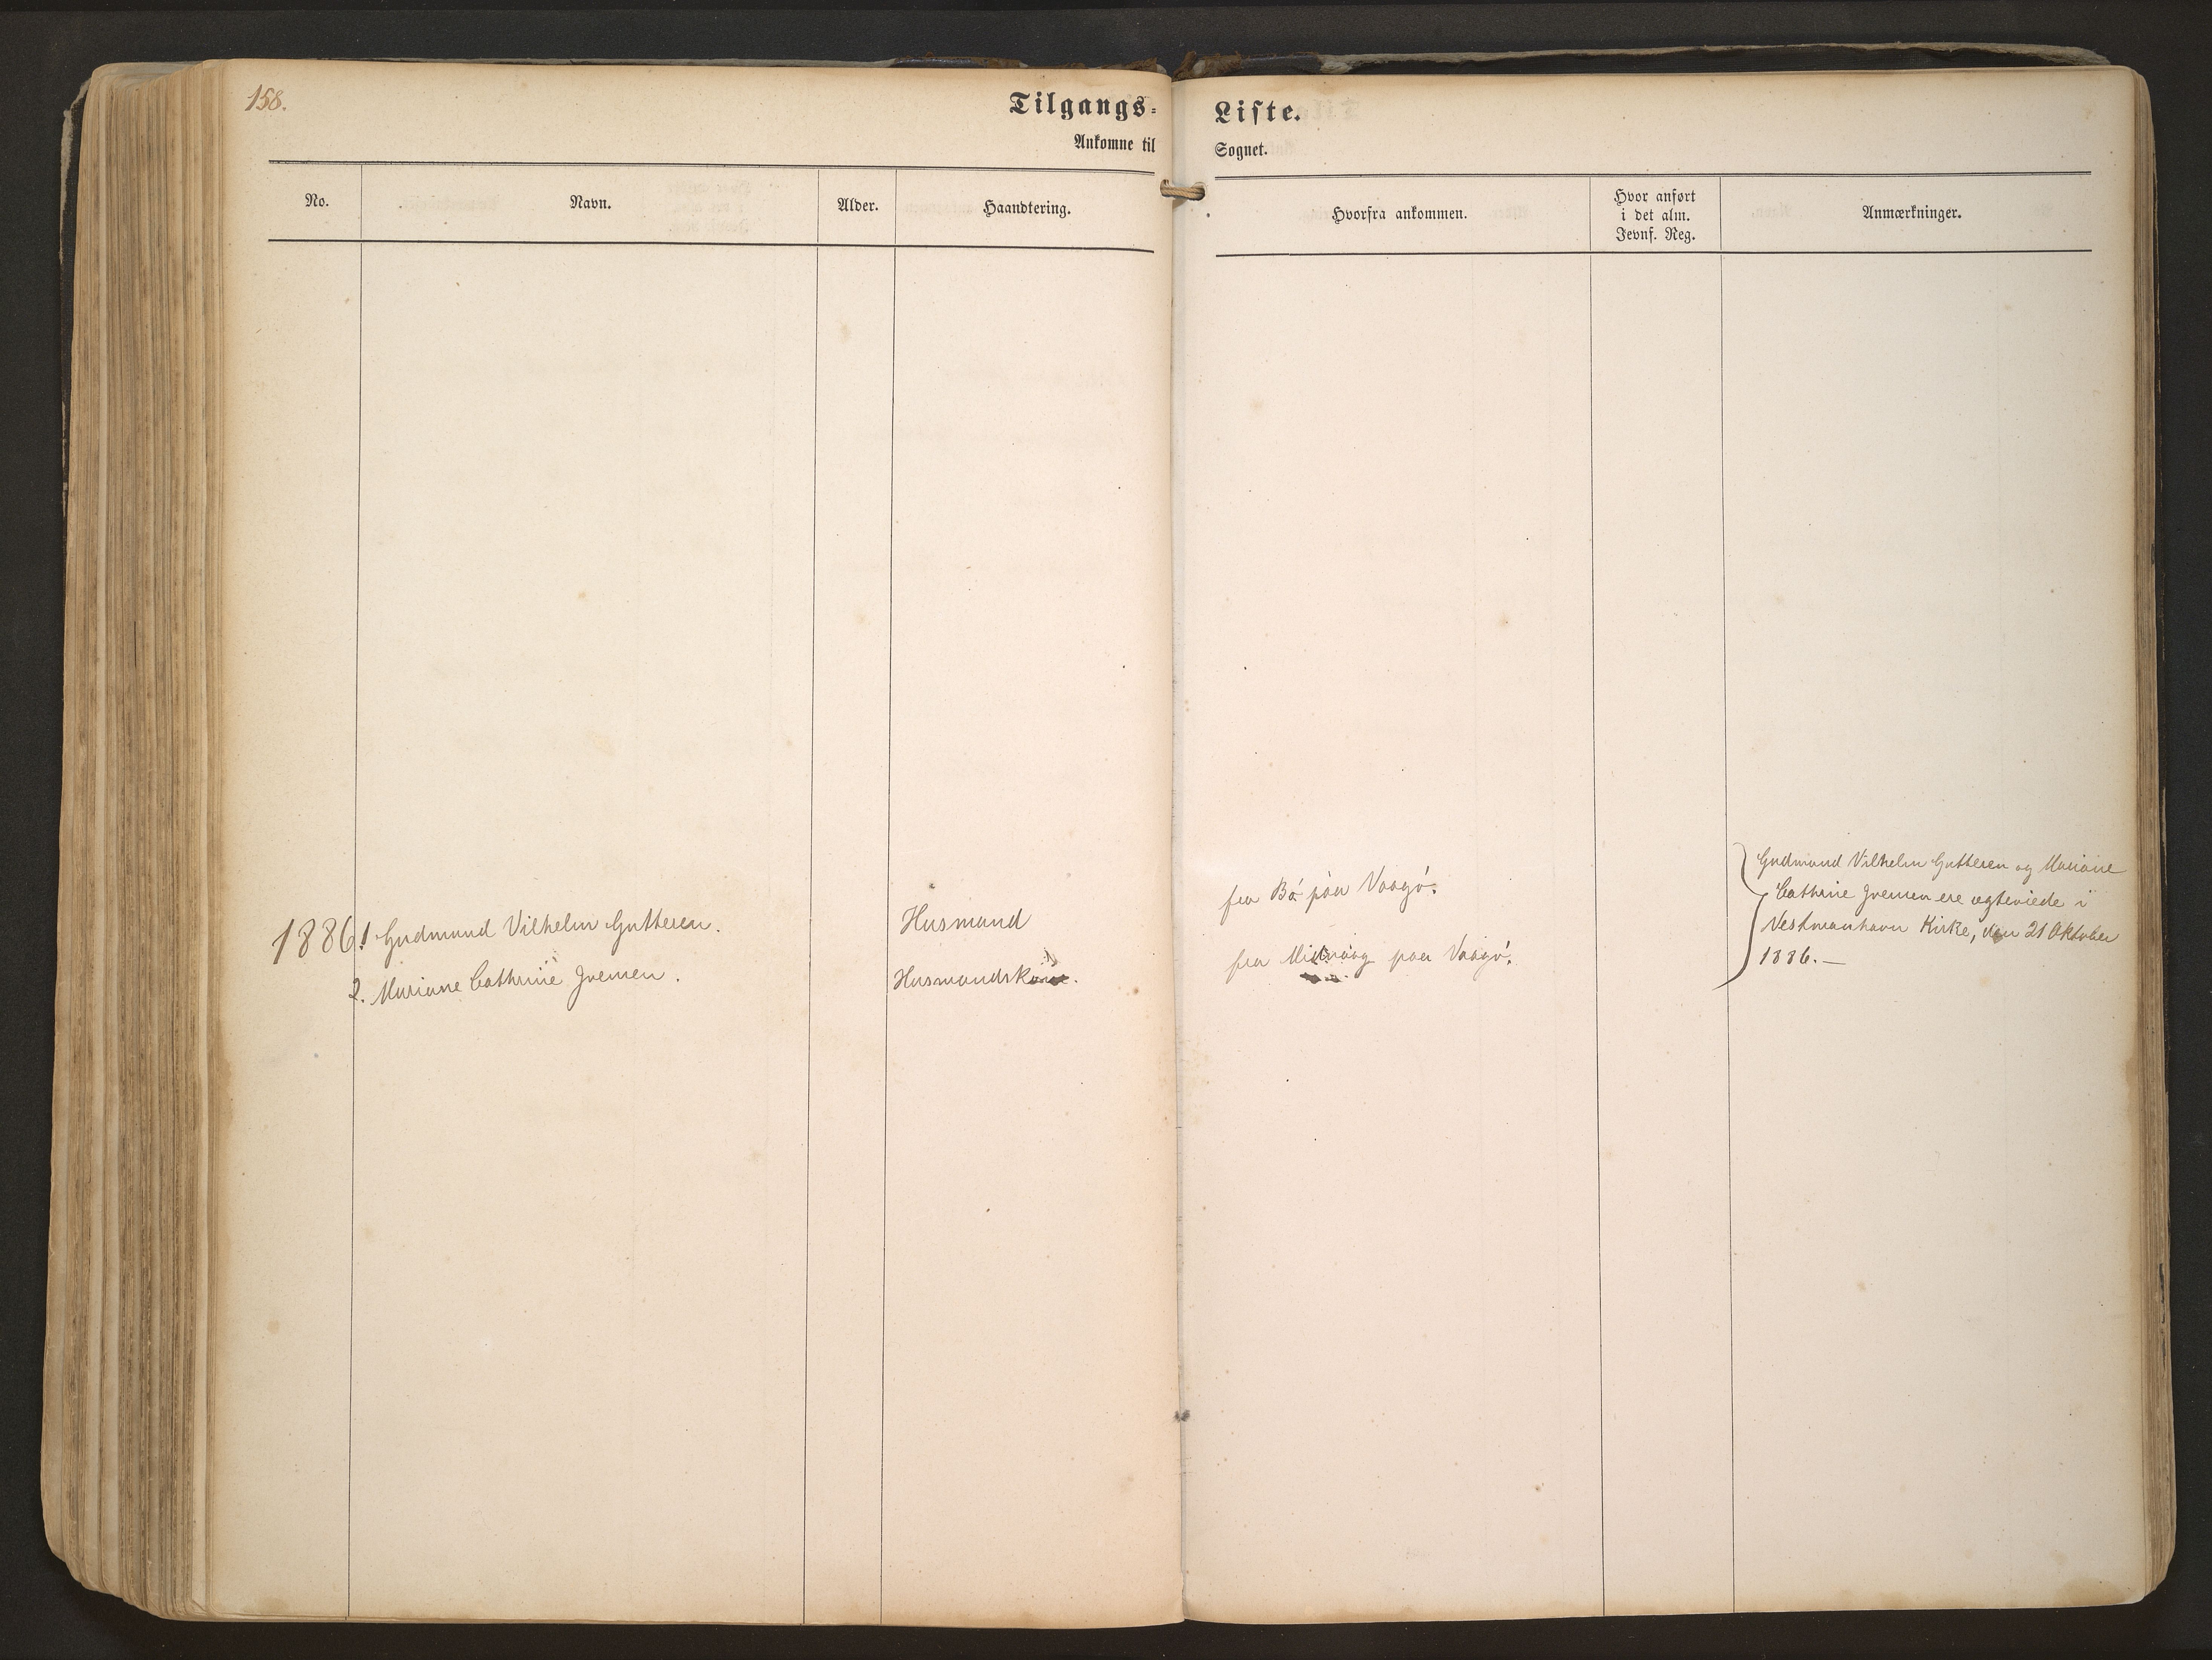 158.
Tilgangs-Liste.
Ankomne til Sognet.
No. Navn. Alder. Haandtering. Hvorfra ankommen. Hvor anført i det alm. Jevnf. Reg. Anmærkninger.
1886. 1 Gudmund Vilhelm Guttesen. Husmand fra Bö paa Vaagö.
2. Mariane Cathrine Joensen. Husmandskone. fra Midvaag paa Vaagö.
Gudmund Vilhelm Guttesen og Mariane
Cathrine Joensen ere egteviede i
Vestmanhavn Kirke, den 21 Oktober
1886. —